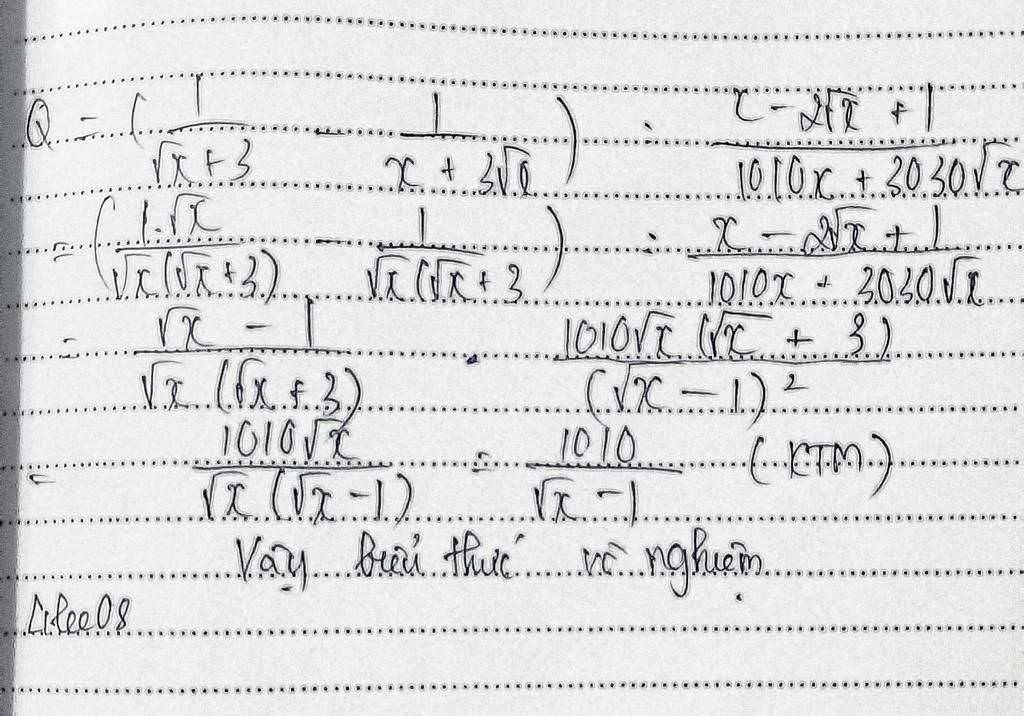 Q = ( 1/(√x + 3) - 1/(x + 3√x) ) : (x - 2√x + 1)/(1010x + 3030√x)
= ( 1.√x/(√x(√x + 3)) - 1/(√x(√x + 3) ) : (x - 2√x + 1)/(1010x + 3030√x)
= (√x - 1)/(√x (√x + 3)) . 1010√x (√x + 3)/(√x - 1)²
= 1010√x/(√x (√x - 1)) = 1010/(√x - 1) (KTM)
Vậy biểu thức vô nghiệm